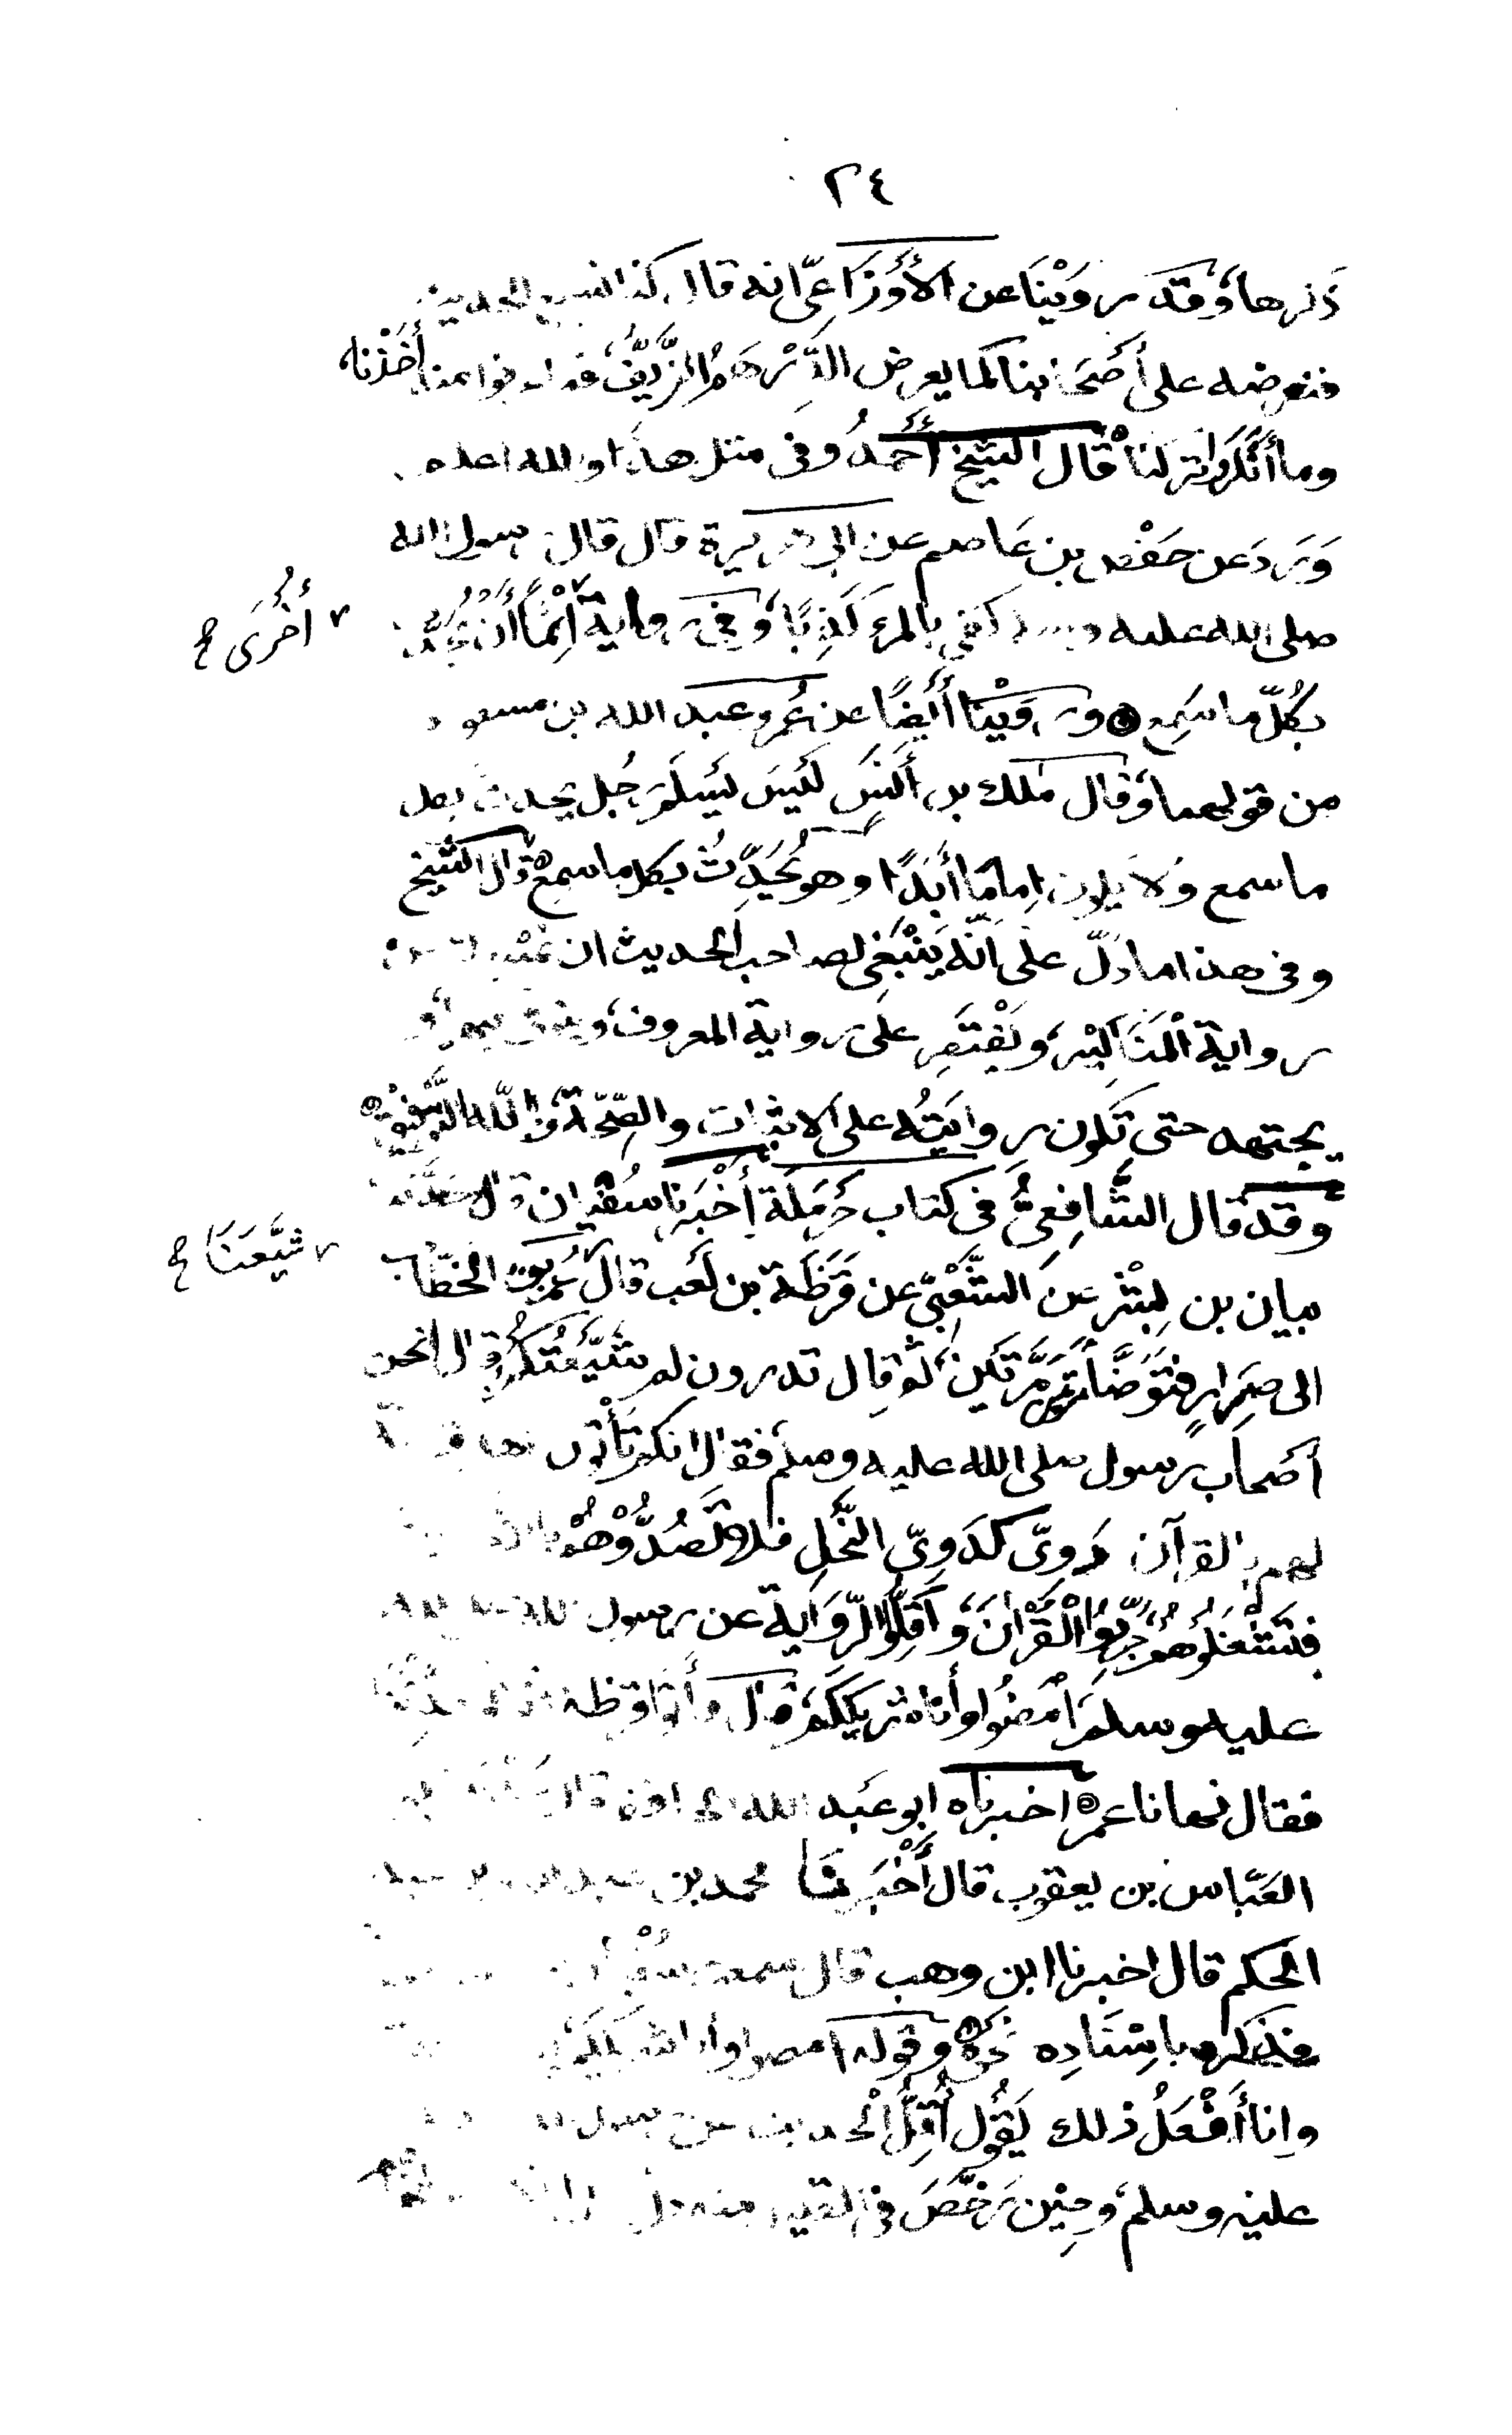 ٢٤
ذكرها، وقد روَيْنَا عن الأَوْزَاعيّ انه قال كنا نسمع الحديث
فنعرضه على أصْحَابنا كما يعرض الدِّرْهَمُ الزَّيِّفُ، فما عرفوا منه أخَذْنَا،
وما أنْكَرُوا تركنا قال الشيخ أحْمَدُ وفى مثل هذا والله اعلم
وَرَدَ عن حَفْص بن عَاصم عن ابى هريرة قال قال رسول الله
صلى الله عليه وسلم كَفى بالمرْءِ كَذِبًا، وفى رواية إثْمًا أن يُحَدِّثَ
أُخْرَى ح
بكُلّ ما سَمِع ورَوَيْنا أيْضًا عن عُمر وعبد الله بن مسعود
من قولهما، وقال مٰلك بن أنَسٍ لَيْسَ يَسْلَمُ رَجُل يحدث بكل
ما سمع وَلَا يكون إمامًا أَبَدًا وهو يُحَدِّثُ بكل ما سمع قال الشيخ
وفى هذا ما دَلّ على أنّه يَنْبَغِى لصاحب الحديث ان
رواية الْمَنَاكِيْر، ويَقْتَصِر على رواية المعروف، ويتوقى فيها، و
يجتهد حتى تكون روايَتُه على الاثبات والصِّحّة، وبا لله التَّوْفِيْق
وقد قال الشَّافِعِىُّ فى كتاب حَرْمَلَة أخْبَرنا سُفْيان قال حَدَّثَنا
شَيَّعَنَا ح
بيان بن بِشْر عن الشَّعْبِىّ عن قَرَظَة بن كَعب قال عُمر بن الخطّاب
الى صِرَارٍ فتَوَضَّأَ مَرَّتَيْن، ثُم قال تدرون لم شَيَّعْتُكُمْ قال نحن
أصْحاب رسول صلى الله عليه وسلم، فقال انكم تَأْتُون
لهم بالقرآن دَوِىّ كدَوِىّ النَّحْلِ فلا تَصُدُّوْهُمْ بالأحاديث
فتَشْغَلُوهُمْ، جَرِّدُوا الْقُرْآنَ، وأقِلُّوا الرِّوَايَة عن رسول الله صلى الله
عليه وسلم، امْضُوا وأنا شَرِيْكُكُمْ، قال وأتوا قرظة
فقال نهانا عمر اخبرناه ابو عَبد الله الحافظ قال
العَبّاس بن يعقوب قال أخْبَرَنَا محمد بن عبد الله بن عبد
الحكم قال اخبرنا ابن وهب قال سمعت سُفْيان
فذكره باِسْنَادِه نَحوَه وقوله امضوا وأنا شريككم
وانا أفْعَلُ ذلك يَقُول أقِلُّ الْحديث عن رسول
عليه وسلم، وحِيْن رَخّصَ فى